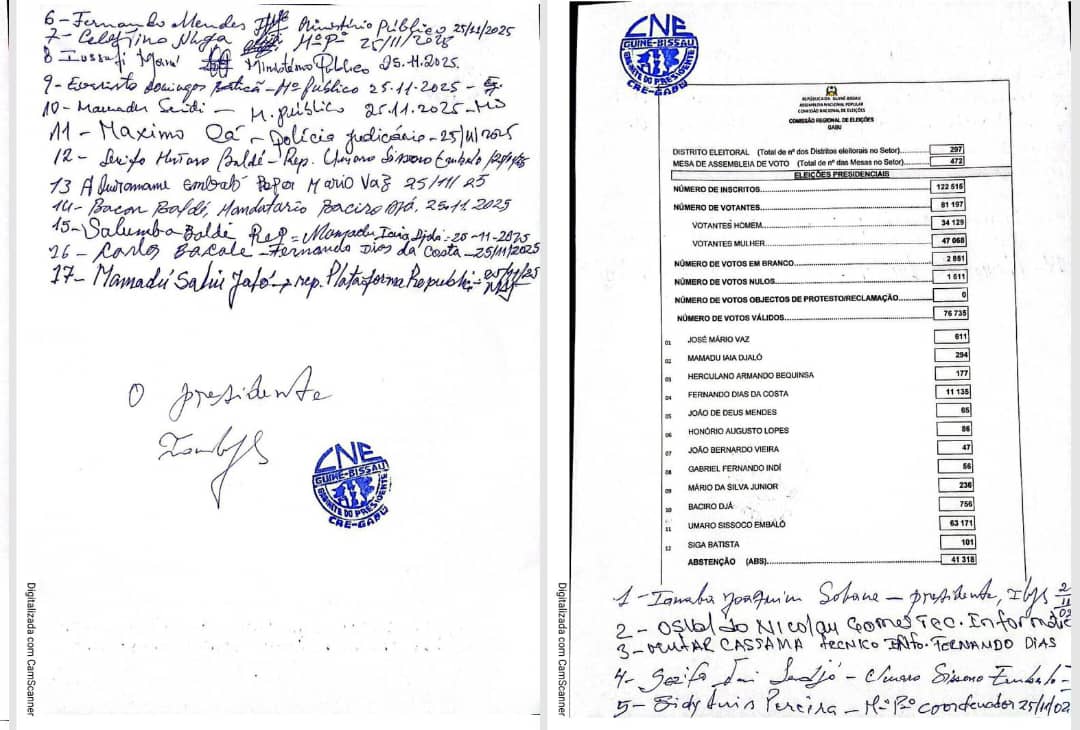 6-Fernando Mendes Ministério Público 25/11/2025
7- Celestino Nhaga MºPº 25/11/2025
8 Iussufi Mané Ministério Público 25.11.2025.
9- Evaristo Domingos - Mº Publico 25.11.2025 -
10- Mamadu Saidi - M. público 25.11.2025-
11- Maximo Cá - Polícia judiciária - 25/11/2025
12 - Baldé - Rep. Umaro Sissoco Embaló
13 Embaló Mario Vaz 25/11/25
14- Bacar Baldé, Mandatario Baciro Djá, 25.11.2025
15- Salumba Baldé Rep = Mamadu Iaia Djaló: 25-11-2025
26 - Carlos - Fernando Dias da Costa - 25/11/2025
17- Mamadú Saliu rep. Plataforma Republi
O presidente
CNE
GUINÉ-BISSAU
GABINETE DO PRESIDENTE
CRE-GABU
Digitalizada com CamScanner
CNE
GUINÉ-BISSAU
GABINETE DO PRESIDENTE
CRE-GABU
REPÚBLICA DA GUINÉ-BISSAU
ASSEMBLEIA NACIONAL POPULAR
COMISSÃO NACIONAL DE ELEIÇÕES
COMISSÃO REGIONAL DE ELEIÇÕES
GABU
DISTRITO ELEITORAL (Total de nº dos Distritos eleitorais no Setor) 297
MESA DE ASSEMBLEIA DE VOTO (Total de nº das Mesas no Setor) 472
ELEIÇÕES PRESIDENCIAIS
NÚMERO DE INSCRITOS 122 515
NÚMERO DE VOTANTES 81 197
VOTANTES HOMEM 34 129
VOTANTES MULHER 47 068
NÚMERO DE VOTOS EM BRANCO 2 851
NÚMERO DE VOTOS NULOS 1 611
NÚMERO DE VOTOS OBJECTOS DE PROTESTO/RECLAMAÇÃO 0
NÚMERO DE VOTOS VÁLIDOS 76 735
01 JOSÉ MÁRIO VAZ 611
02 MAMADU IAIA DJALÓ 294
03 HERCULANO ARMANDO BEQUINSA 177
04 FERNANDO DIAS DA COSTA 11 135
05 JOÃO DE DEUS MENDES 65
06 HONÓRIO AUGUSTO LOPES 86
07 JOÃO BERNARDO VIEIRA 47
08 GABRIEL FERNANDO INDÍ 56
09 MÁRIO DA SILVA JUNIOR 236
10 BACIRO DJÁ 756
11 UMARO SISSOCO EMBALÓ 63 171
12 SIGA BATISTA 101
ABSTENÇÃO (ABS) 41 318
1 - Joaquim - presidente,
2 - Osvaldo Nicolau Gomes Tec. Informátic
3- CASSAMA TECNICO INFO. FERNANDO DIAS
4- - Umaro Sissoco Embaló -
5- Luis Pereira - Mº Pº coordenador 25/11/
Digitalizada com CamScanner